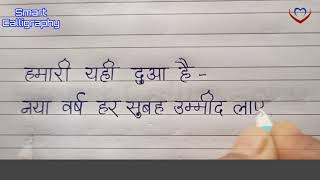 Smart
Calligraphy
हमारी यही दुआ है -
नया वर्ष हर सुबह उम्मीद लाए